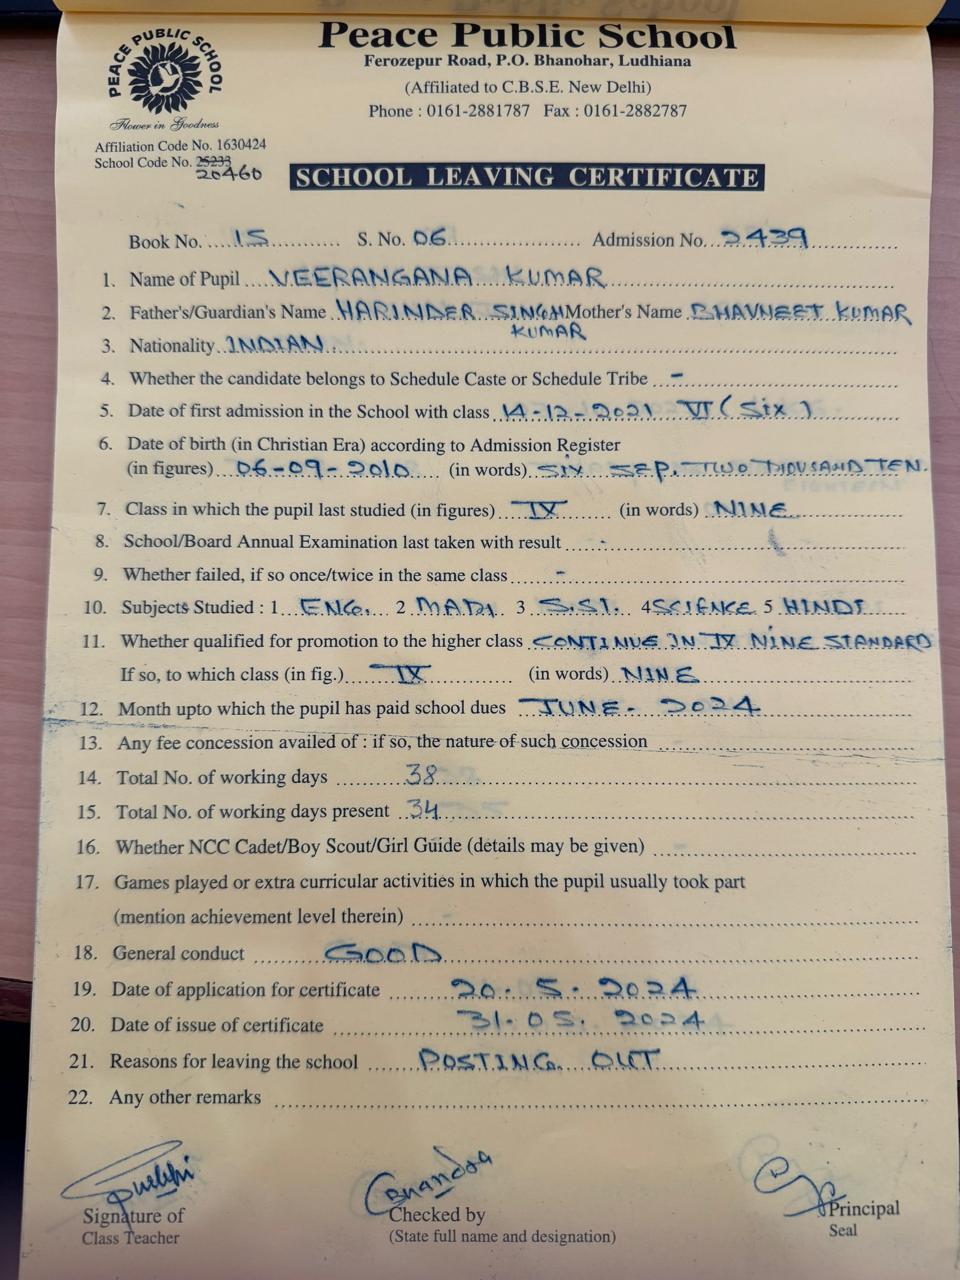 Peace Public School
Ferozepur Road, P.O. Bhanohar, Ludhiana
(Affiliated to C.B.S.E. New Delhi)
Phone : 0161-2881787 Fax : 0161-2882787
PEACE PUBLIC SCHOOL
Flower in Goodness
Affiliation Code No. 1630424
School Code No. 25233
20460
SCHOOL LEAVING CERTIFICATE
Book No. 15 S. No. 06 Admission No. 2439
1. Name of Pupil VEERANGANA KUMAR
2. Father's/Guardian's Name HARINDER SINGH Mother's Name BHAVNEET KUMAR
KUMAR
3. Nationality INDIAN
4. Whether the candidate belongs to Schedule Caste or Schedule Tribe -
5. Date of first admission in the School with class 14-12-2021 VI (Six)
6. Date of birth (in Christian Era) according to Admission Register
(in figures) 06-09-2010 (in words) SIX SEP. TWO THOUSAND TEN.
7. Class in which the pupil last studied (in figures) IX (in words) NINE
8. School/Board Annual Examination last taken with result -
9. Whether failed, if so once/twice in the same class -
10. Subjects Studied : 1 ENG. 2 3 S.St. 4 SCIENCE 5 HINDI
11. Whether qualified for promotion to the higher class CONTINUE IN IX NINE STANDARD
If so, to which class (in fig.) IX (in words) NINE
12. Month upto which the pupil has paid school dues JUNE - 2024
13. Any fee concession availed of : if so, the nature of such concession
14. Total No. of working days 38
15. Total No. of working days present 34
16. Whether NCC Cadet/Boy Scout/Girl Guide (details may be given)
17. Games played or extra curricular activities in which the pupil usually took part
(mention achievement level therein)
18. General conduct GOOD
19. Date of application for certificate 20.5.2024
20. Date of issue of certificate 31.05.2024
21. Reasons for leaving the school POSTING OUT
22. Any other remarks
Signature of Checked by Principal
Class Teacher (State full name and designation) Seal